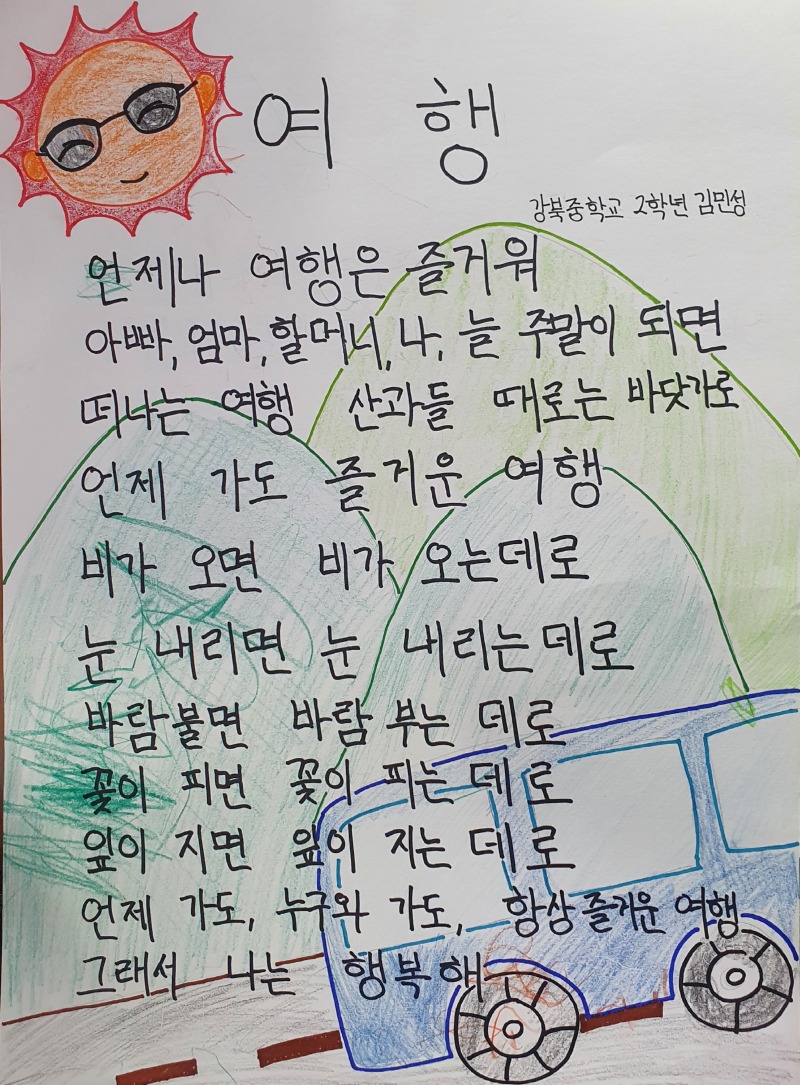 여 행
강북중학교 2학년 김민성
언제나 여행은 즐거워
아빠, 엄마, 할머니, 나, 늘 주말이 되면
떠나는 여행 산과들 때로는 바닷가로
언제 가도 즐거운 여행
비가 오면 비가 오는데로
눈 내리면 눈 내리는데로
바람불면 바람 부는 데로
꽃이 피면 꽃이 피는 데로
잎이 지면 잎이 지는 데로
언제 가도, 누구와 가도, 항상 즐거운 여행
그래서 나는 행복해